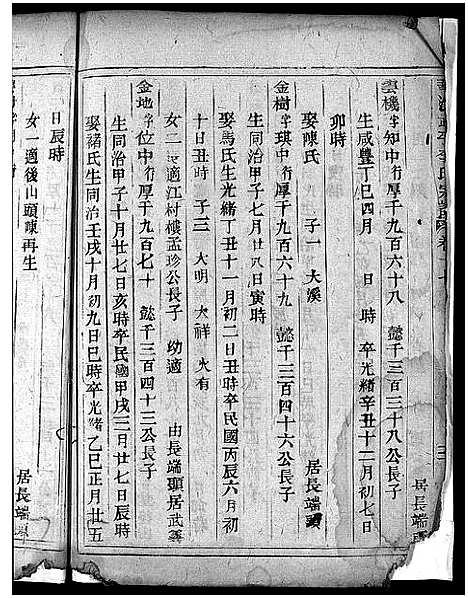 雲機字知中行厚千九百六十八　懿千三百三十八公長子
生咸豊丁巳四月　日　時　卒光緒辛丑十二月初七日
卯時
娶陳氏　子一　大溪　居長端頭
金樹字琪中行厚千九百六十九　懿千三百四十六公長子
生同治甲子七月廿八日寅時
娶馬氏生光緒丁丑十一月初二日丑時卒民國丙辰六月初
十日丑時　子三　大明　大祥　火有
女二　長適江村樓孟珍公長子　幼適　由長端頭居武義
金地字位中行厚千九百七十　懿千三百四十三公長子
生同治甲子十月廿七日亥時卒民國甲戌三月廿七日辰時
娶褚氏生同治壬戌十月初九日巳時卒光緒乙巳正月廿五
日辰時
女一適後山頭陳再生　居長端頭
居長端頭